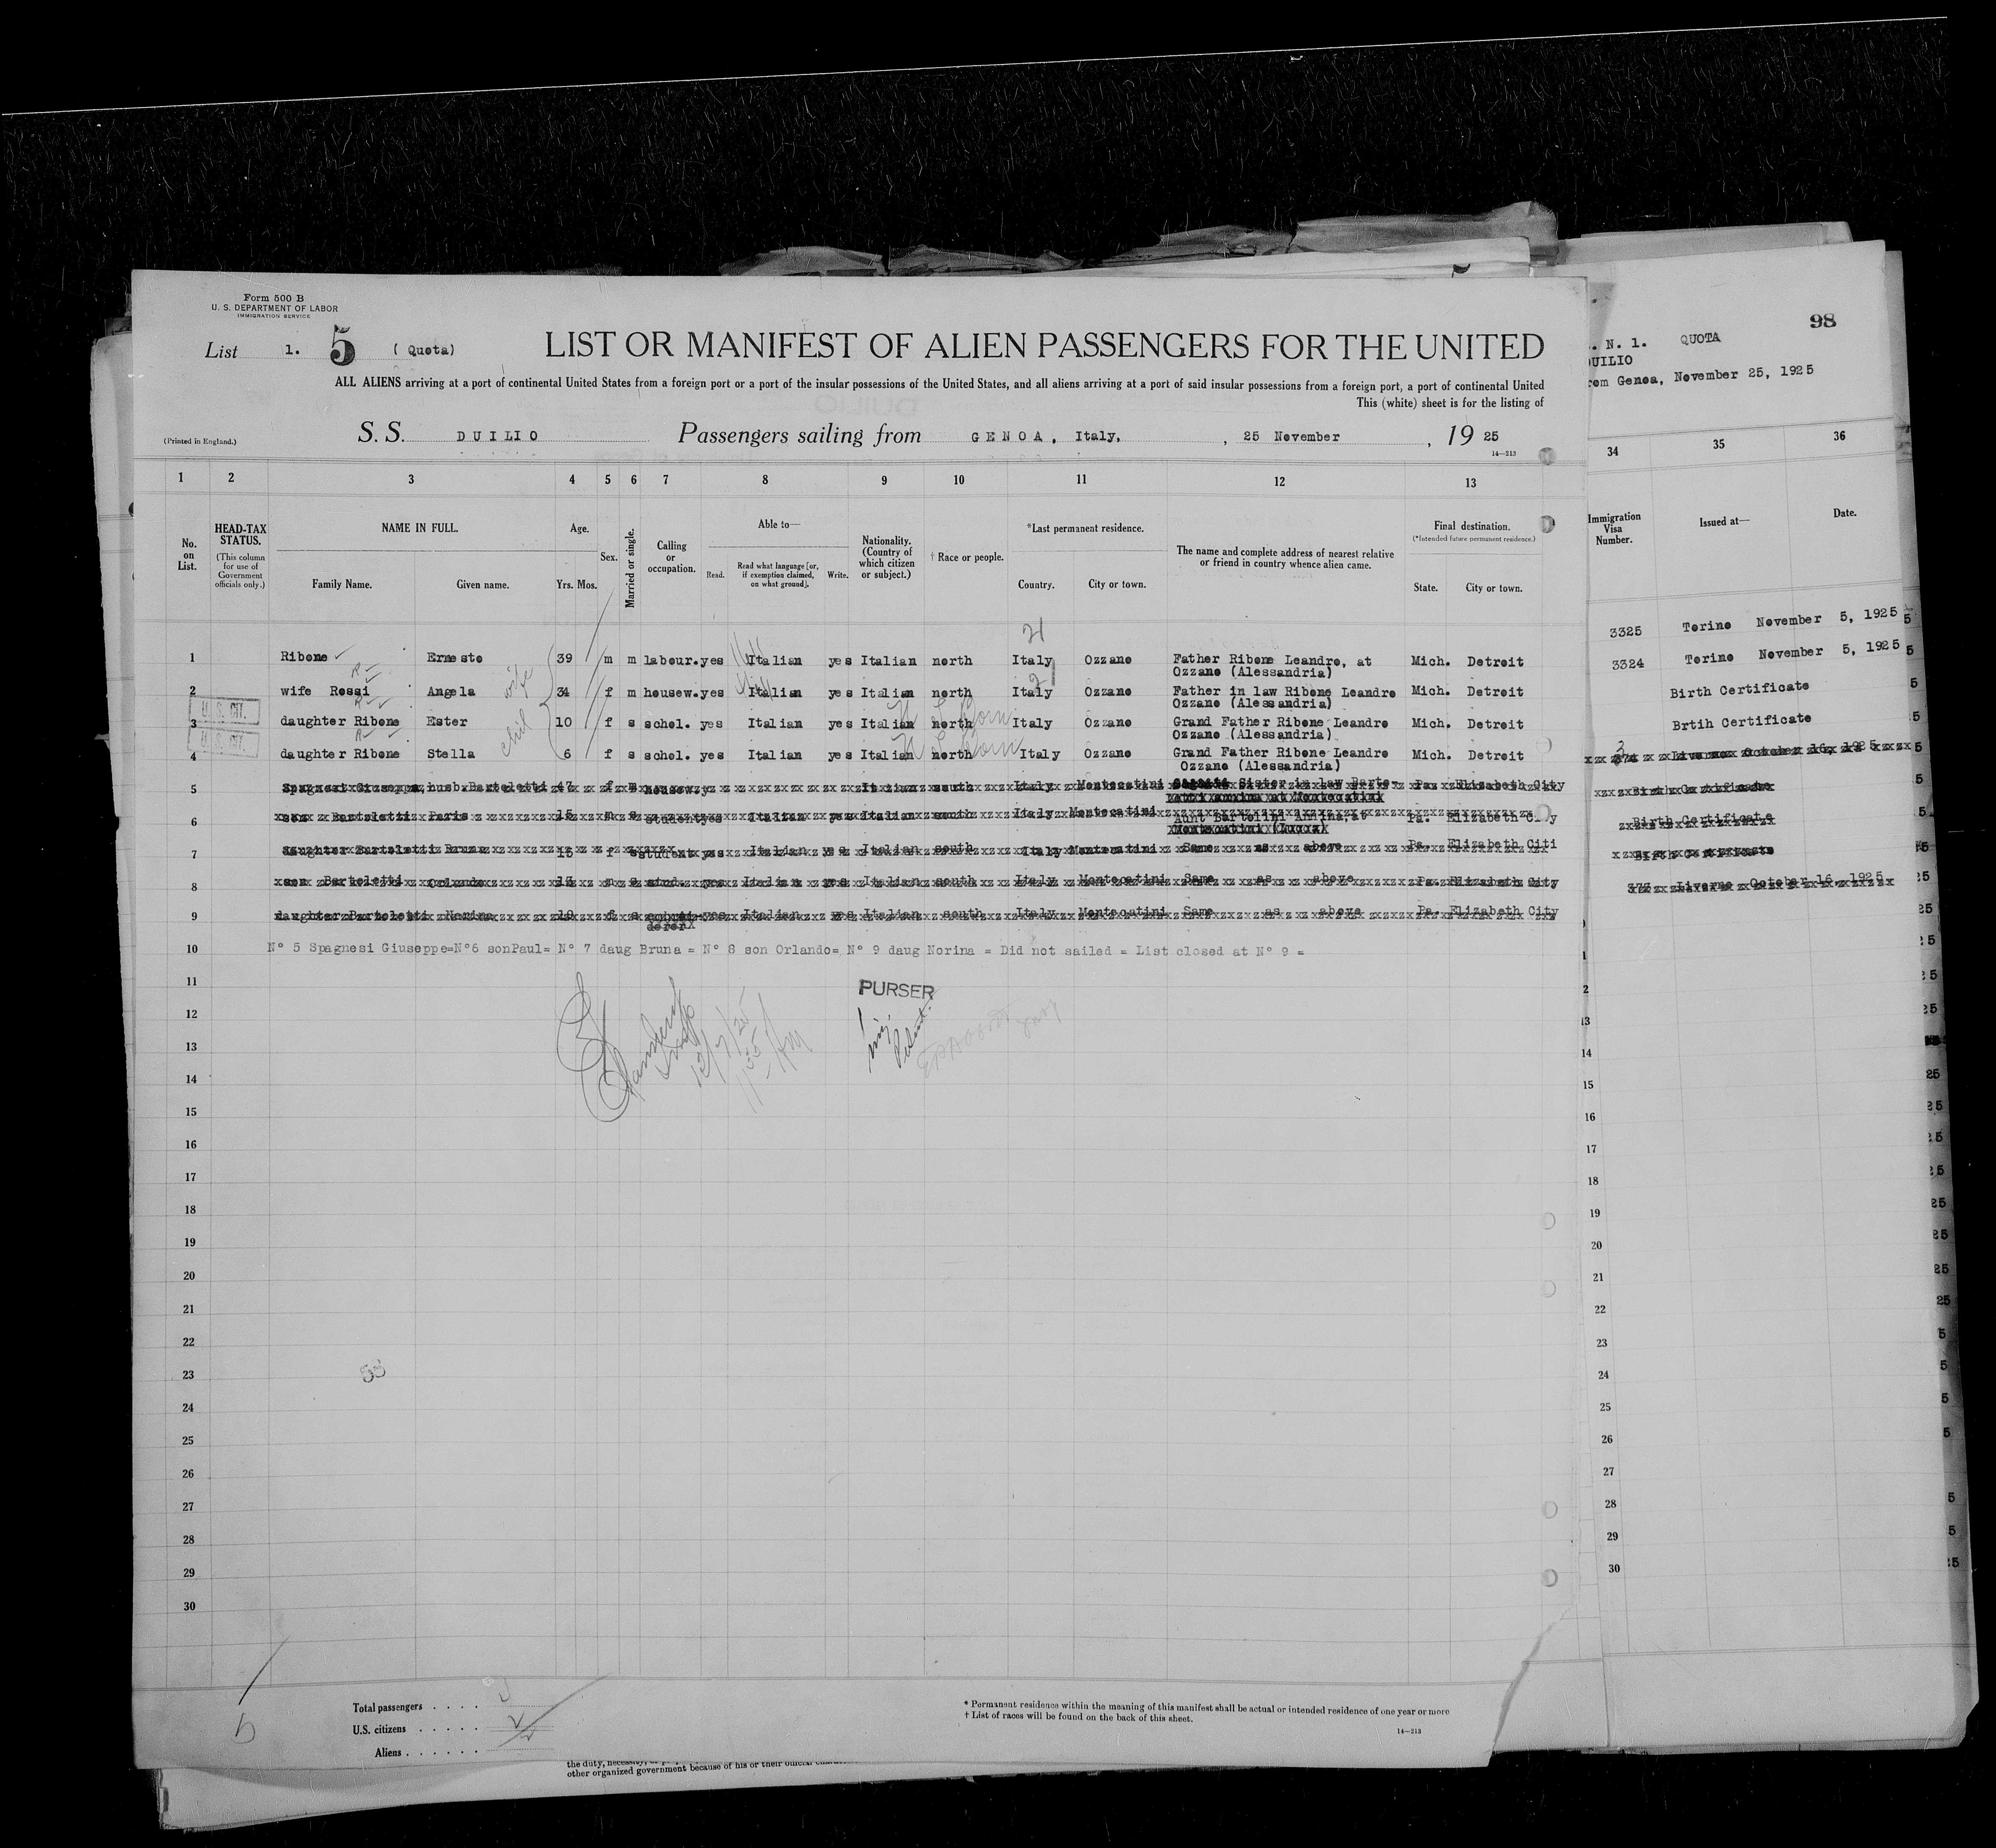 Form 500 B
U. S. DEPARTMENT OF LABOR
IMMIGRATION SERVICE
List 1. 5 ( Quota)
LIST OR MANIFEST OF ALIEN PASSENGERS FOR THE UNITED
ALL ALIENS arriving at a port of continental United States from a foreign port or a port of the insular possessions of the United States, and all aliens arriving at a port of said insular possessions from a foreign port, a port of continental United
This (white) sheet is for the listing of
(Printed in England.)
S. S. DUILIO Passengers sailing from GENOA, Italy, , 25 November , 19 25
14—213
1 2 3 4 5 6 7 8 9 10 11 12 13
No. on List.
HEAD-TAX STATUS.
(This column for use of Government officials only.)
NAME IN FULL.
Family Name. Given name.
Age.
Yrs. Mos.
Sex.
Married or single.
Calling or occupation.
Able to—
Read. Read what language [or, if exemption claimed, on what ground]. Write.
Nationality. (Country of which citizen or subject.)
† Race or people.
*Last permanent residence.
Country. City or town.
The name and complete address of nearest relative or friend in country whence alien came.
Final destination.
(*Intended future permanent residence.)
State. City or town.
21
1 Ribone Ernesto 39 m m labour. yes Italian yes Italian north Italy Ozzano Father Ribone Leandro, at Mich. Detroit
Ozzano (Alessandria)
2 wife Rossi Angela wife 34 f m housew. yes Italian yes Italian north Italy Ozzano Father in law Ribone Leandro Mich. Detroit
Ozzano (Alessandria)
U. S. CIT.
3 daughter Ribone Ester 10 f s schol. yes Italian yes Italian north Italy Ozzano Grand Father Ribone Leandro Mich. Detroit
Ozzano (Alessandria)
U. S. CIT.
4 daughter Ribone Stella 6 f s schol. yes Italian yes Italian north Italy Ozzano Grand Father Ribone Leandro Mich. Detroit
Ozzano (Alessandria)
5 Spagnesi Giuseppa, husb. Bartoletti 47 f m housew. Italian south Italy Montecatini Sister in law Pa. Elizabeth City
6 son Bartoletti Paris 15 student yes Italian yes Italian south Italy Montecatini Aunt Bartolini Annina, at Pa. Elizabeth
Montecatini (Lucca)
7 daughter Bartoletti Bruna 15 f s student yes Italian yes Italian south Italy Montecatini Same as above Pa. Elizabeth Citi
8 son Bartoletti Orlando 13 m s stud. yes Italian yes Italian south Italy Montecatini Same as above Pa. Elizabeth City
9 daughter Bartoletti Norina 19 f s yes Italian yes Italian south Italy Montecatini Same as above Pa. Elizabeth City
10 N° 5 Spagnesi Giuseppe=N°6 sonPaul= N° 7 daug Bruna = N° 8 son Orlando= N° 9 daug Norina = Did not sailed = List closed at N° 9 =
11
PURSER
12
13
14
15
16
17
18
19
20
21
22
23
24
25
26
27
28
29
30
Total passengers . . . .
U.S. citizens . . . . .
Aliens . . . . . .
* Permanent residence within the meaning of this manifest shall be actual or intended residence of one year or more
† List of races will be found on the back of this sheet.
14—213
other organized government because of his or their official
98
. N. 1. QUOTA
DUILIO
rom Genoa, November 25, 1925
34 35 36
Immigration Visa Number.
Issued at—
Date.
3325 Torino November 5, 1925
3324 Torino November 5, 1925
Birth Certificate
Brtih Certificate
374 Livorno October 16, 1925
Birth Certificate
Birth Certificate
Birth Certificate
373 Livorno October 16, 1925
14
15
16
17
18
19
20
21
22
23
24
25
26
27
28
29
30